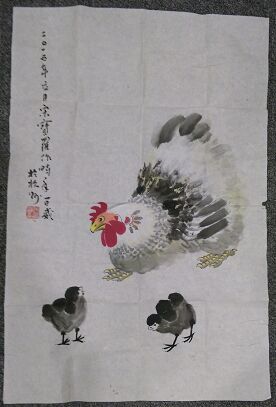 二〇一五年六月宋宝羅作時年百歲
於杭州